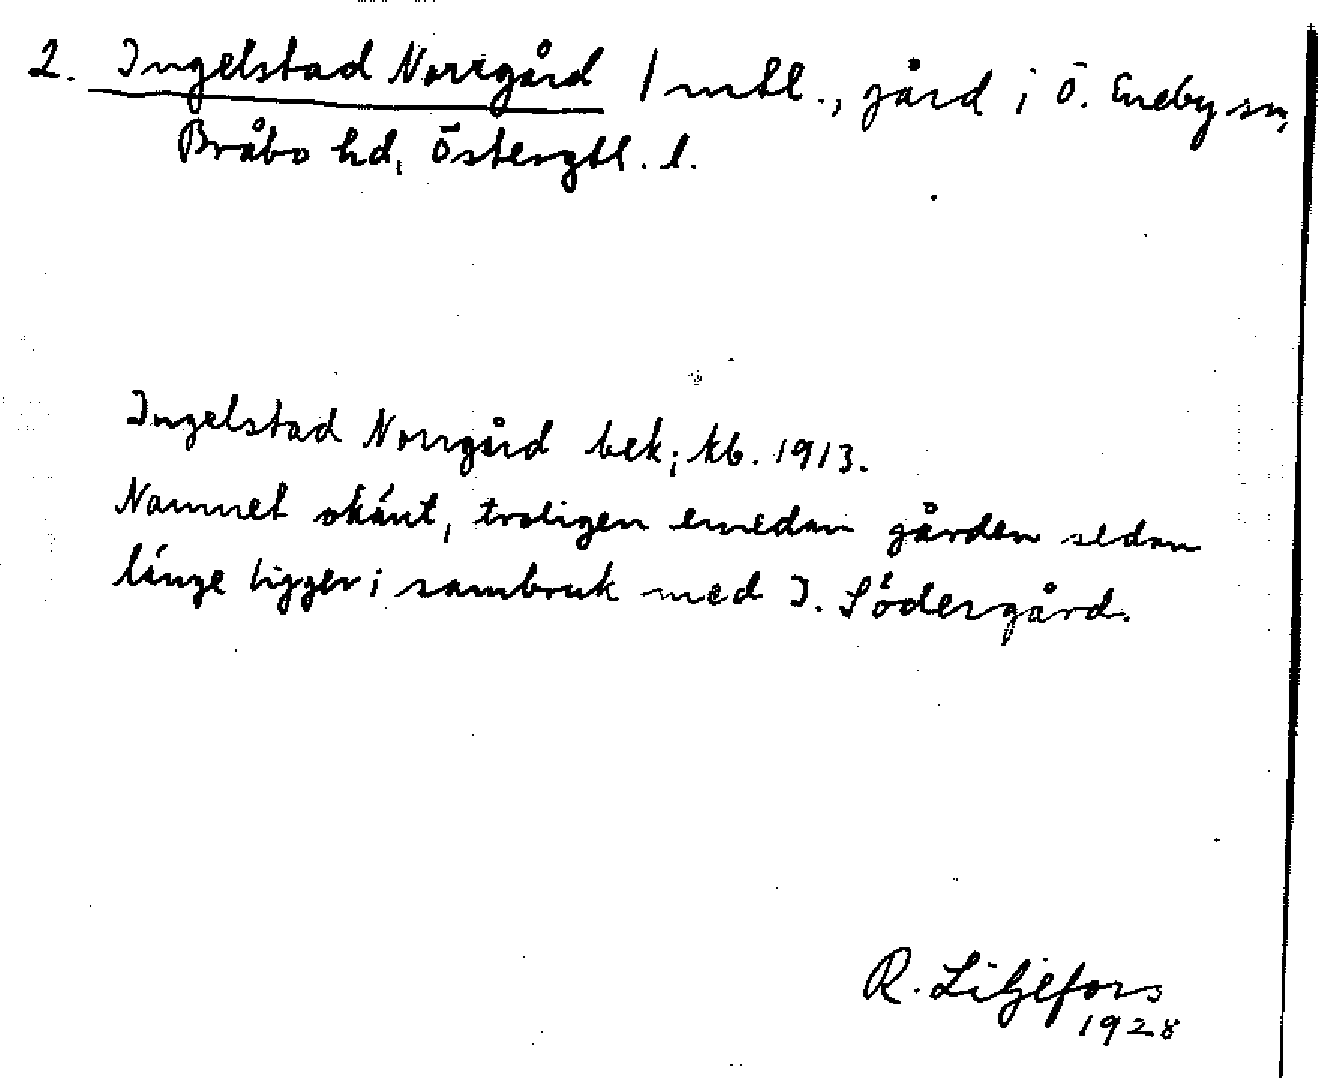 2. Ingelstad Norrgård 1 mtl., gård i Ö. Eneby sn,
Bråbo hd, Östergtl. l.
Ingelstad Norrgård bek; kb. 1913.
Namnet okänt, troligen emedan gården sedan
länge ligger i sambruk med I. Södergård.
R. Liljefors
1928